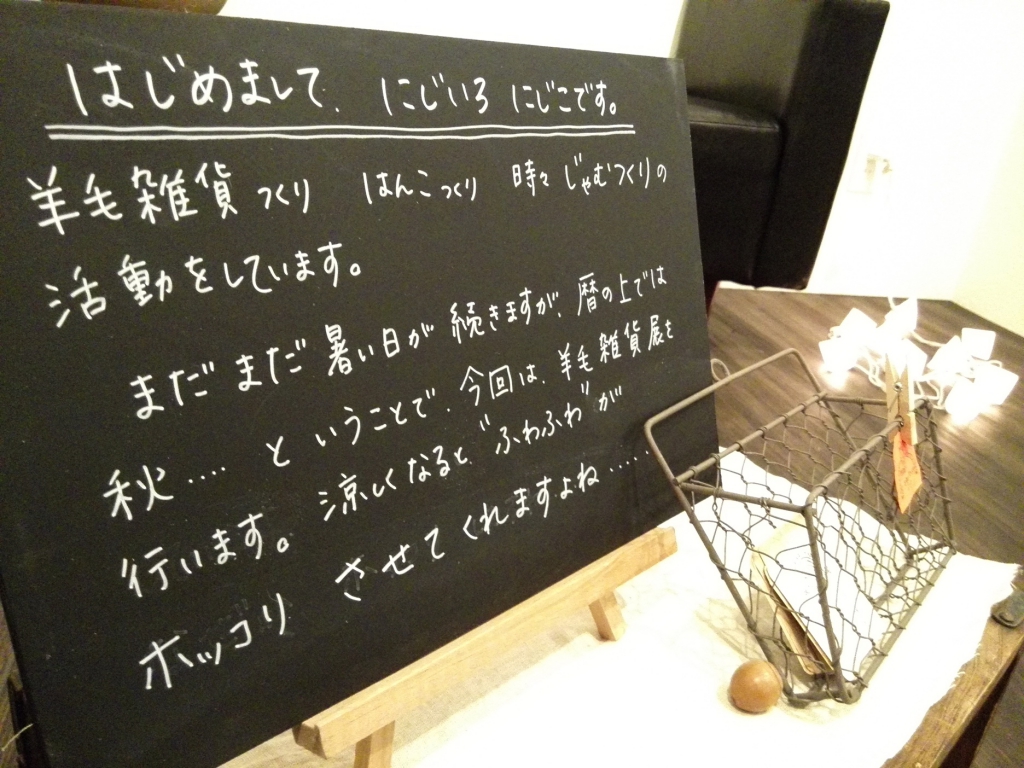 はじめまして、 にじいろ にじこです。
羊毛雑貨つくり はんこつくり 時々じゃむつくりの
活動をしています。
まだまだ暑い日が続きますが、暦の上では
秋‥‥ ということで、今回は、羊毛雑貨展を
行います。涼しくなると“ふわふわ”が
ホッコリ させてくれますよね‥‥‥